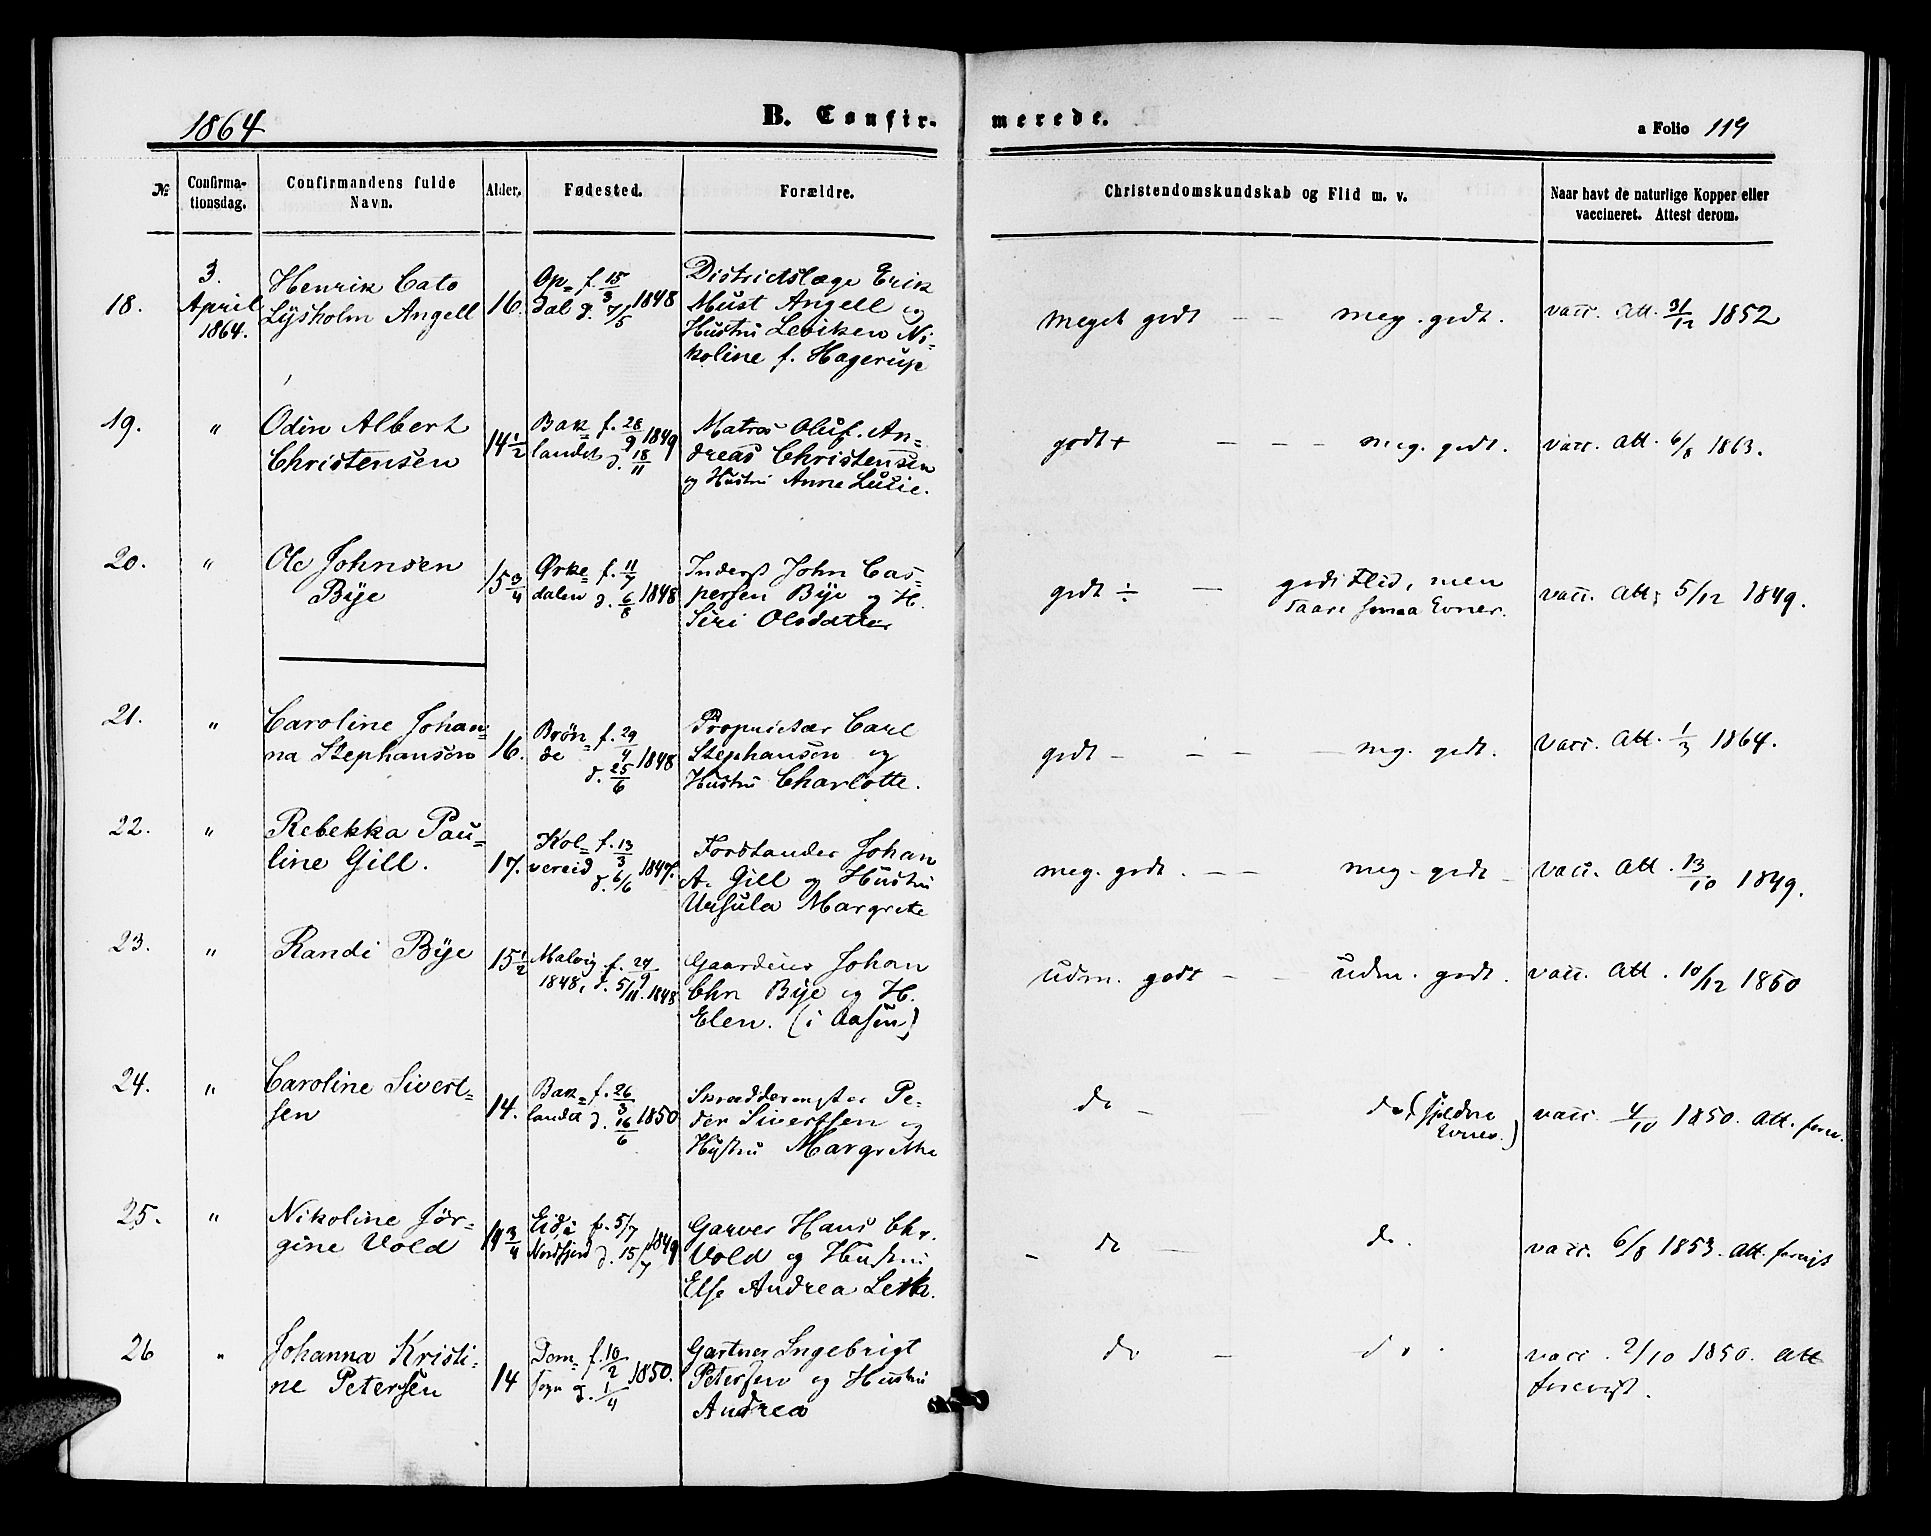 1864 B. Confirmerede. a Folio 119
№ Confirmationsdag. Confirmandens fulde Navn. Alder. Fødested. Forældre. Christendomskundskab og Flid m. v. Naar havt de naturlige Kopper eller vaccineret. Attest derom.
18. 3. April 1864. Henrik Cato Lysholm Angell 16. Op= dal f. 15/3 d. 7/5 1848
Districtslæge Erik
Must Angell og
Hustru Leviken Ni=
koline f. Hagerup
meget godt – – meg. godt. vacc. att. 31/12 1852
19. " Odin Albert Christensen 14 1/2 Bak= landet f. 28/9 1849 d. 18/11
Matros Oluf An=
dreas Christensen
og Hustru Anne Lucie.
godt + – – – meg. godt. vacc. att. 6/8 1863.
20. " Ole Johnsen Bye 15 3/4 Ørke= dalen f. 11/7 d. 6/8 1848
Inderst John Cas=
persen Bye og H.
Siri Olsdatter
godt ÷ – god Flid, men
saare smaa Evner.
vacc. att. 5/12 1849.
21. " Caroline Johan= na Stephansen 16. f. 29/4 d. 25/6 1848
Proprietær Carl
Stephansen og
Hustru Charlotte.
godt – – – – meg. godt. vacc. att. 1/3 1864.
22. " Rebekka Pau= line Gill. 17. Kol= vereid f. 13/3 d. 6/6 1847.
Forstander Johan
A. Gill og Hustru
Ursula Margrete
meg. godt. – – meg. godt – vacc. att. 13/10 1849.
23. " Randi Bye 15 1/2 Malvig f. 27/9 1848, d. 5/11. 1848
Gaardbrer Johan
Chr Bye og H.
Elen. (i Aasen)
udm. godt – – udm. godt. vacc. att. 10/12 1850
24. " Caroline Sivert= sen 14. Bak= landet f. 26/3 d. 16/6 1850
Skreddermester Pe=
der Sivertsen og
Hustru Margrethe
do – do (sjeldne
Evner.)
vacc. 4/10 1850. att. forev.
25. " Nikoline Jør= gine Vold 14 3/4 Eid i Nordfjord f. 5/7 d. 15/7 1849
Garver Hans Chr.
Vold og Hustru
Else Andrea Leth.
– do – do. vacc. 6/8 1853. att. forevist
26 " Johanna Kristi= ne Petersen 14 Dom= sogn f. 10/2 d. 1/4 1850.
Gartner Ingebrigt
Petersen og Hustru
Andrea
do – do. vacc. 2/10 1850. att
forevist.